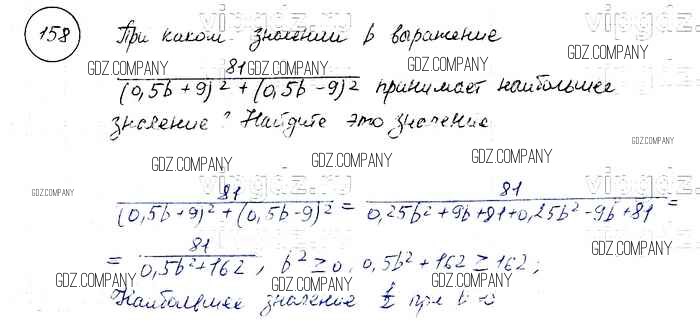 158 При каком значении b выражение
81
(0,5b+9)² + (0,5b-9)² принимает наибольшее
значение? Найдите это значение
81 / (0,5b+9)² + (0,5b-9)² = 81 / 0,25b²+9b+81+0,25b²-9b+81 =
= 81 / 0,5b²+162, b² ≥ 0, 0,5b²+162 ≥ 162;
Наибольшее значение 1/2 при b =
vipgdz.ru
GDZ.COMPANY
GDZ.COMPANY
GDZ.COMPANY
GDZ.COMPANY
GDZ.COMPANY
GDZ.COMPANY
vipgdz.ru
vipgdz.ru
GDZ.COMPANY
GDZ.COMPANY
GDZ.COMPANY
GDZ.COMPANY
GDZ.COMPANY
GDZ.COMPANY
GDZ.COMPANY